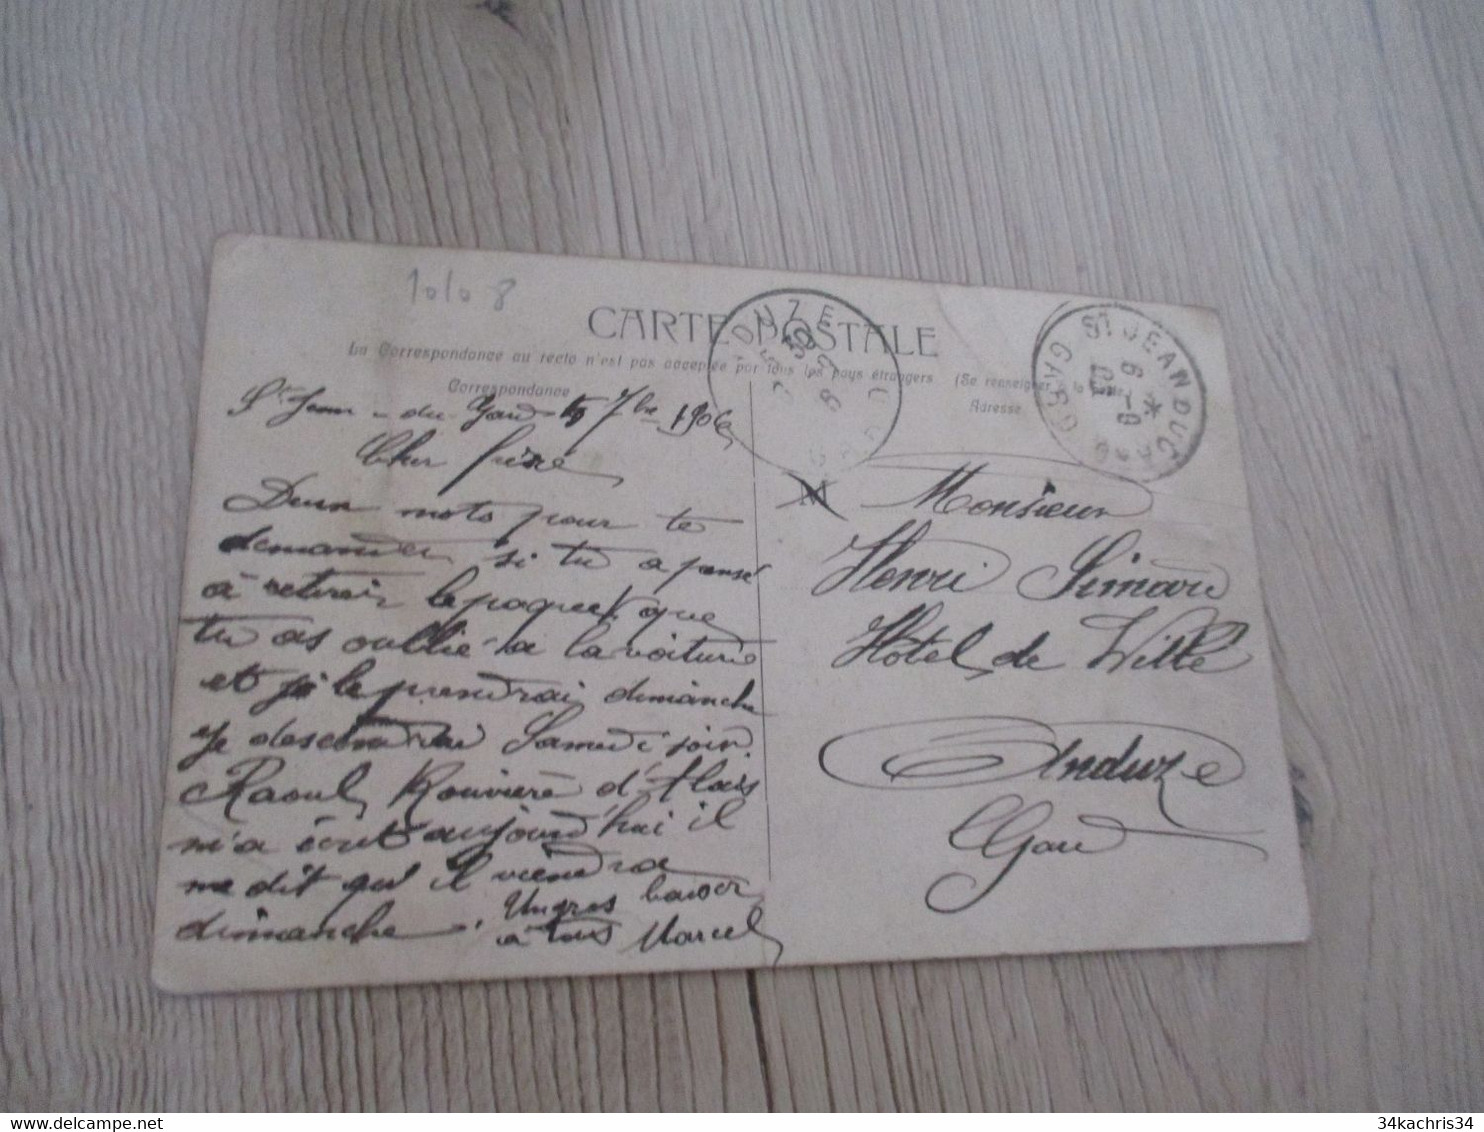 10108
CARTE POSTALE
La Correspondance au recto n'est pas acceptée par tous les pays étrangers (Se renseigner à la
Correspondance
Adresse
St Jean-du-Gard 7bre 1906
Cher frère
Deux mots pour te
demander si tu a pensé
à retirer le paquet que
tu as oublié à la voiture
et je le prendrai dimanche
je descendrai Samedi soir.
Raoul Rouvière d'Alais
m'a écrit aujourd'hui il
me dit qu'il viendra
dimanche. Un gros baiser
à tous Marcel
ST JEAN DU GARD
GARD
M
Monsieur
Henri Simard
Hôtel de Ville
Anduze
Gard
34kachris34